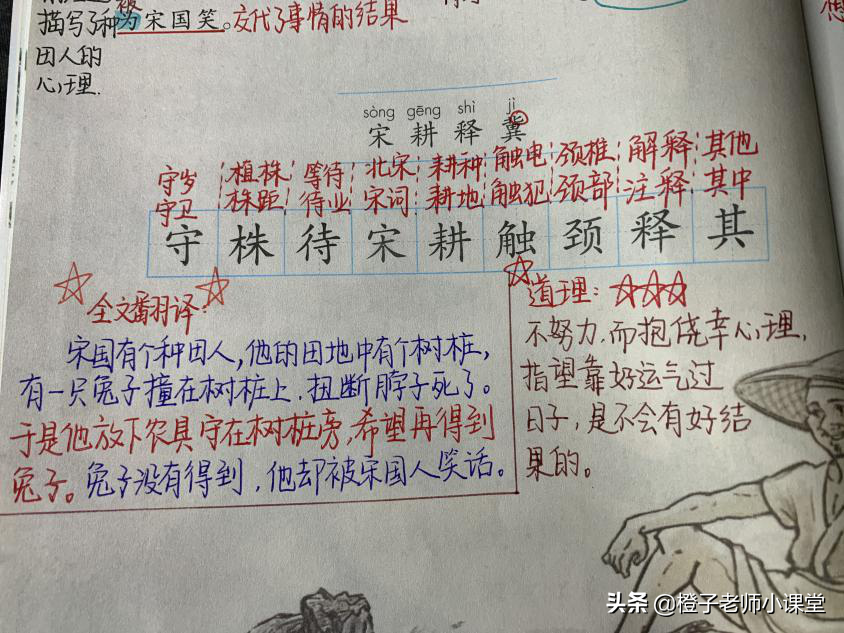 描写了种为宋国笑。交代了事情的结果
田人的
心理.
sòng gēng shì jì
宋 耕 释 冀
守岁 植株 等待 北宋 耕种 触电 颈椎 解释 其他
守卫 株距 待业 宋词 耕地 触犯 颈部 注释 其中
守 株 待 宋 耕 触 颈 释 其
全文翻译:
宋国有个种田人,他的田地中有个树桩,
有一只兔子撞在树桩上.扭断脖子死了。
于是他放下农具守在树桩旁,希望再得到
兔子。兔子没有得到,他却被宋国人笑话。
道理:
不努力,而抱侥幸心理,
指望靠好运气过
日子,是不会有好结
果的。
头条 @橙子老师小课堂